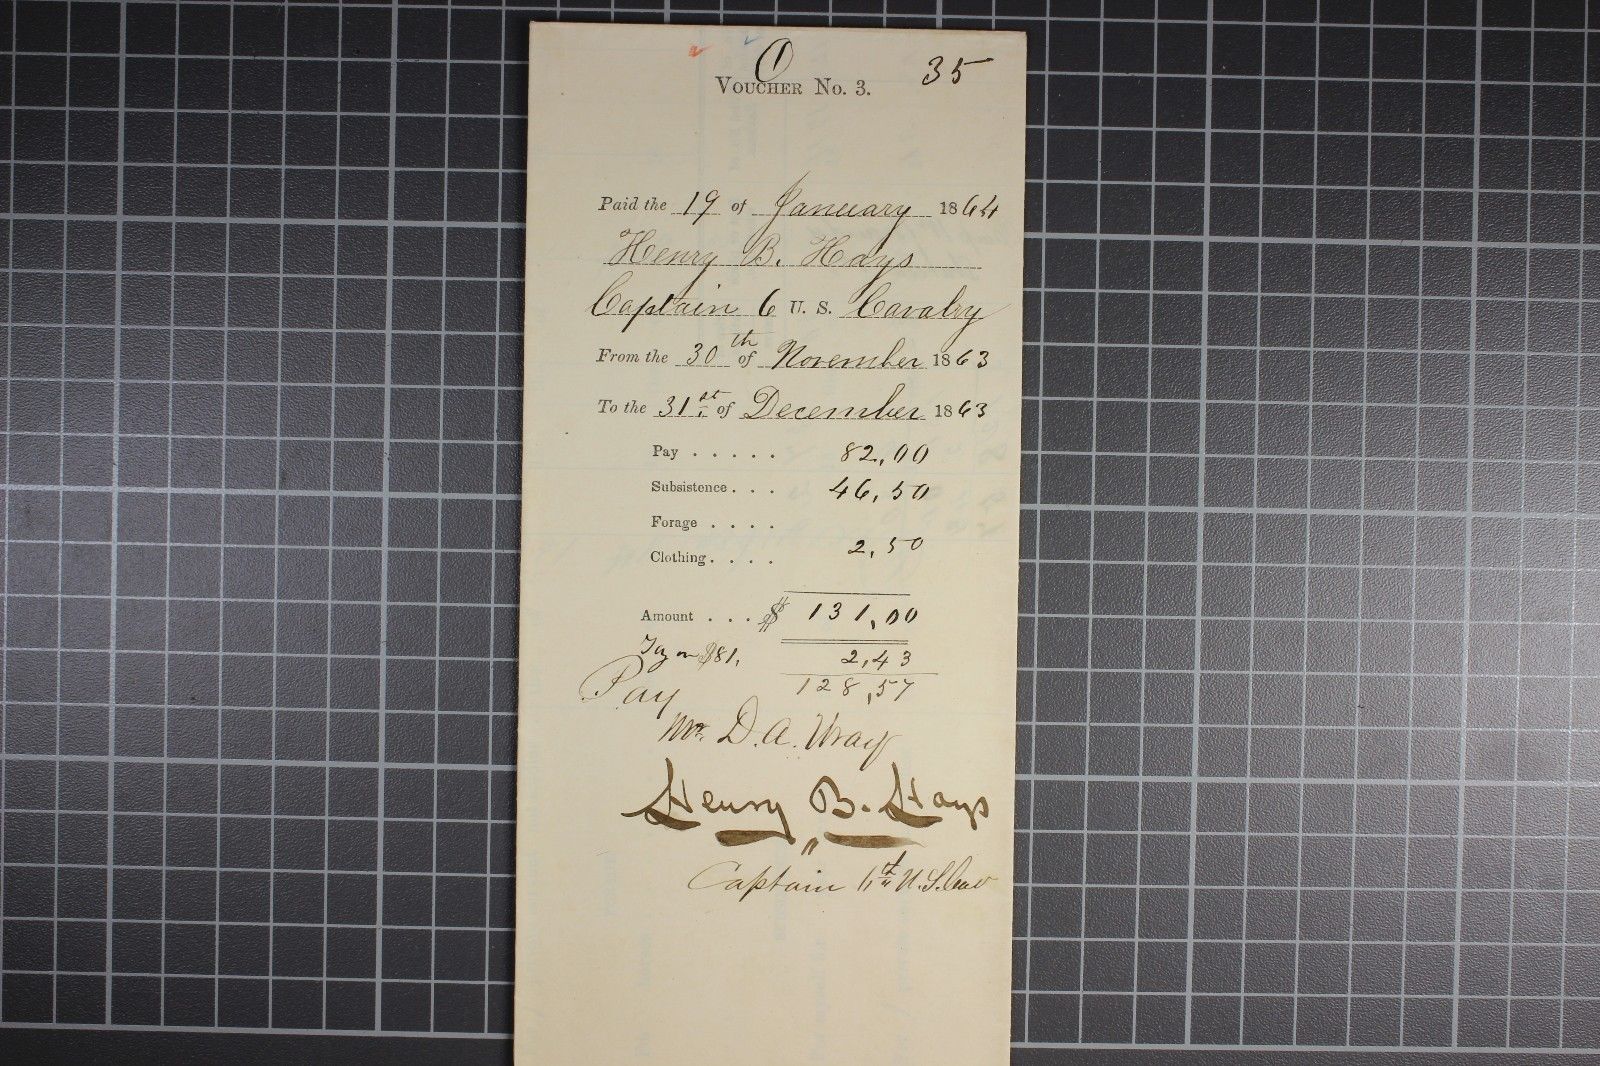 O 35
VOUCHER No. 3.
Paid the 19 of January 1864
Henry B. Hays
Captain 6 U. S. Cavalry
From the 30th of November 1863
To the 31st of December 1863
Pay . . . . . 82,00
Subsistence . . . 46,50
Forage . . . .
Clothing . . . . 2,50
Amount . . . $ 131,00
Tax on $81, 2,43
128,57
Pay
Mr. D. A. Wray
Henry B. Hays
Captain 6th U.S. Cav